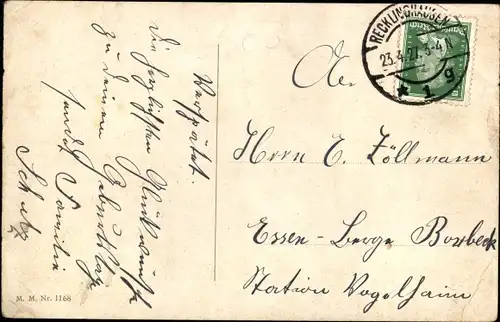 Verspätet.
Die herzlichsten Glückwünsche
zu deinem Geburtstage
sendet Familie
Schulz
M. M. Nr. 1168
RECKLINGHAUSEN
23.4.27. 3-4 N
* 1 g
An
Herrn E. Zöllmann
Essen-Berge Borbeck
Station Vogelheim